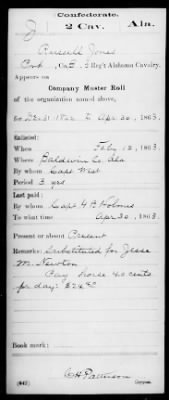 Confederate.
J 2 Cav. Ala.
Russell Jones
Co. E, 2 Reg't Alabama Cavalry.
Appears on
Company Muster Roll
of the organization named above,
for Dec 31 1862 to Apr 30, 1863.
Enlisted:
When Feb 12, 1863.
Where Baldwin Co Ala
By whom Capt West
Period 3 yrs
Last paid:
By whom Capt Holmes
To what time Apr 30, 1863.
Present or absent Present
Remarks: Substituted for Jesse
M. Newton
Pay horse 40 cents
per day:
Book mark:
(642) C H Patterson
Copyist.